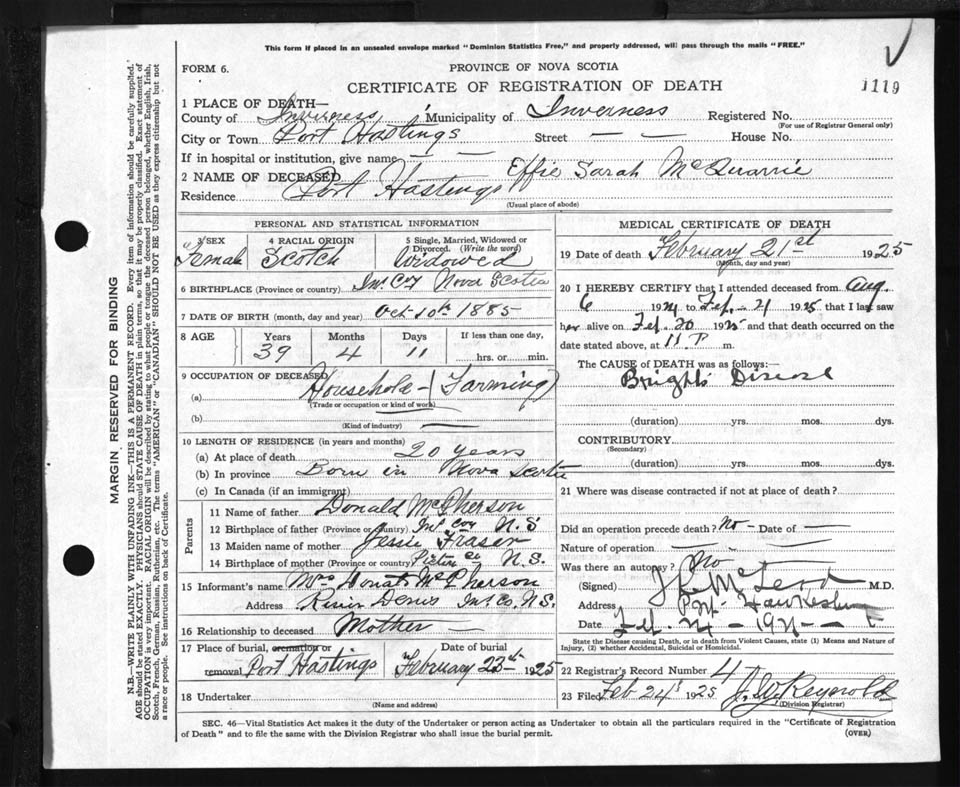 This form if placed in an unsealed envelope marked "Dominion Statistics Free," and properly addressed, will pass through the mails "FREE."
FORM 6.
PROVINCE OF NOVA SCOTIA
CERTIFICATE OF REGISTRATION OF DEATH
1119
1 PLACE OF DEATH—
County of Inverness Municipality of Inverness Registered No.
(For use of Registrar General only)
City or Town Port Hastings Street — — House No.
If in hospital or institution, give name — —
2 NAME OF DECEASED Effie Sarah McQuarrie
Residence Port Hastings
(Usual place of abode)
PERSONAL AND STATISTICAL INFORMATION
3 SEX Female
4 RACIAL ORIGIN Scotch
5 Single, Married, Widowed or Divorced. (Write the word) Widowed
6 BIRTHPLACE (Province or country) Inv. Cty Nova Scotia
7 DATE OF BIRTH (month, day and year) Oct 10th 1885
8 AGE Years Months Days If less than one day,
39 4 11 hrs. or min.
9 OCCUPATION OF DECEASED
(a) Household – (Farming)
(Trade or occupation or kind of work)
(b)
(Kind of industry) —
10 LENGTH OF RESIDENCE (in years and months)
(a) At place of death 20 years
(b) In province Born in Nova Scotia
(c) In Canada (if an immigrant)
Parents
11 Name of father Donald McPherson
12 Birthplace of father (Province or country) Inv Coy N.S
13 Maiden name of mother Jessie Fraser
14 Birthplace of mother (Province or country) Pictou Co N.S.
15 Informant's name Mrs McPherson
Address River Denys Inv. Co. N.S.
16 Relationship to deceased Mother —
17 Place of burial, cremation or removal Port Hastings
Date of burial February 23rd 1925
18 Undertaker
(Name and address)
MEDICAL CERTIFICATE OF DEATH
19 Date of death February 21st 1925
(Month, day and year)
20 I HEREBY CERTIFY that I attended deceased from Aug.
6 1924 to Feb. 21 1925 that I last saw
her alive on Feb. 20 1925 and that death occurred on the
date stated above, at 11 P m.
The CAUSE OF DEATH was as follows:—
Brights Disease
(duration) yrs. mos. dys.
CONTRIBUTORY
(Secondary)
(duration) yrs. mos. dys.
21 Where was disease contracted if not at place of death?
Did an operation precede death? No – Date of —
Nature of operation — —
Was there an autopsy? No
(Signed) McLeod M.D.
Address Hawkesbury
Date Feb. 24
State the Disease causing Death, or in death from Violent Causes, state (1) Means and Nature of Injury, (2) whether Accidental, Suicidal or Homicidal.
22 Registrar's Record Number 4
23 Filed Feb 24 1925 J. W. Reynolds
(Division Registrar)
SEC. 46—Vital Statistics Act makes it the duty of the Undertaker or person acting as Undertaker to obtain all the particulars required in the "Certificate of Registration
of Death" and to file the same with the Division Registrar who shall issue the burial permit.
(OVER)
MARGIN RESERVED FOR BINDING
N.B.—WRITE PLAINLY WITH UNFADING INK—THIS IS A PERMANENT RECORD. Every item of information should be carefully supplied.
AGE should be stated EXACTLY. PHYSICIANS should STATE CAUSE OF DEATH in plain terms, so that it may be properly classified. Exact statement of
OCCUPATION is very important. RACIAL ORIGIN will be described by stating to what people or tongue the deceased person belonged, whether English, Irish,
Scotch, French, German, Russian, Ruthenian, etc. The terms "AMERICAN" or "CANADIAN" SHOULD NOT BE USED as they express citizenship but not
a race or people. See instructions on back of Certificate.